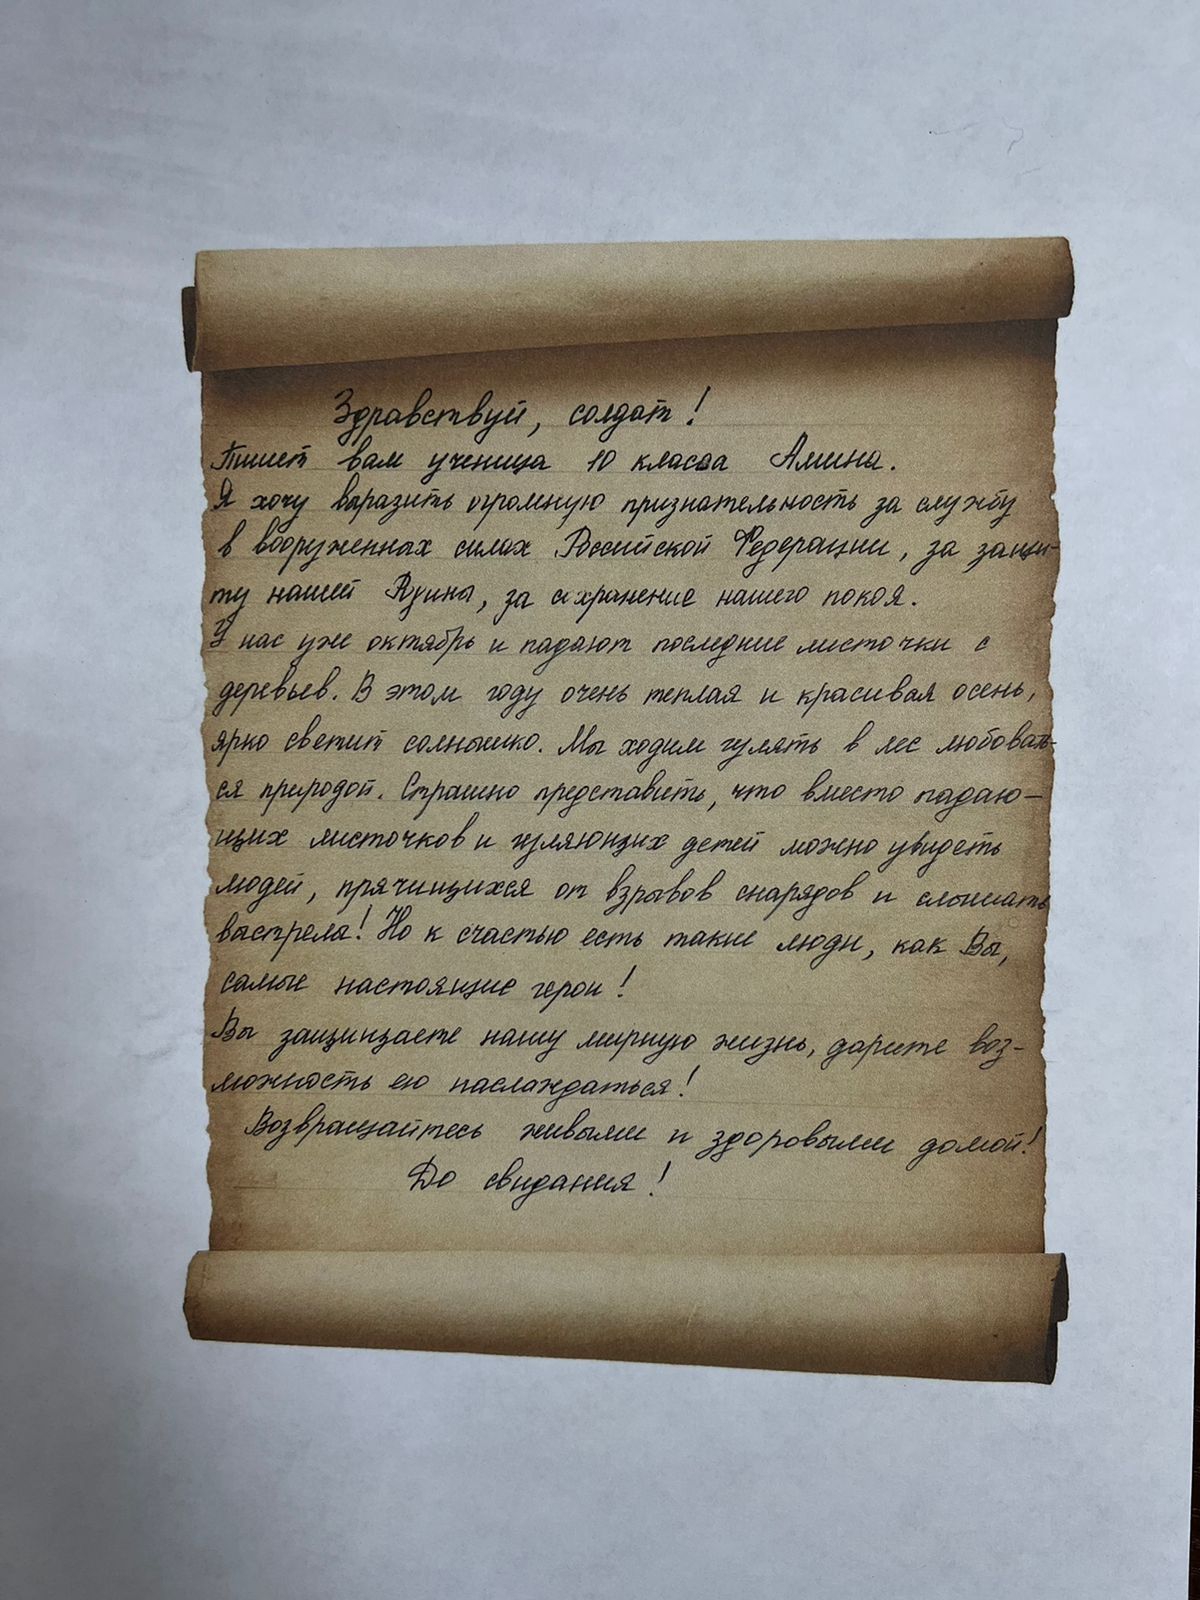 Здравствуй, солдат!
Пишет вам ученица 10 класса Амина.
Я хочу выразить огромную признательность за службу
в вооруженных силах Российской Федерации, за защи-
ту нашей Родины, за сохранение нашего покоя.
У нас уже октябрь и падают последние листочки с
деревьев. В этом году очень теплая и красивая осень,
ярко светит солнышко. Мы ходим гулять в лес любовать-
ся природой. Страшно представить, что вместо падаю-
щих листочков и гуляющих детей можно увидеть
людей, прячущихся от взрывов снарядов и слышать
выстрелы! Но к счастью есть такие люди, как Вы,
самые настоящие герои!
Вы защищаете нашу мирную жизнь, дарите воз-
можность ею наслаждаться!
Возвращайтесь живыми и здоровыми домой!
До свидания!